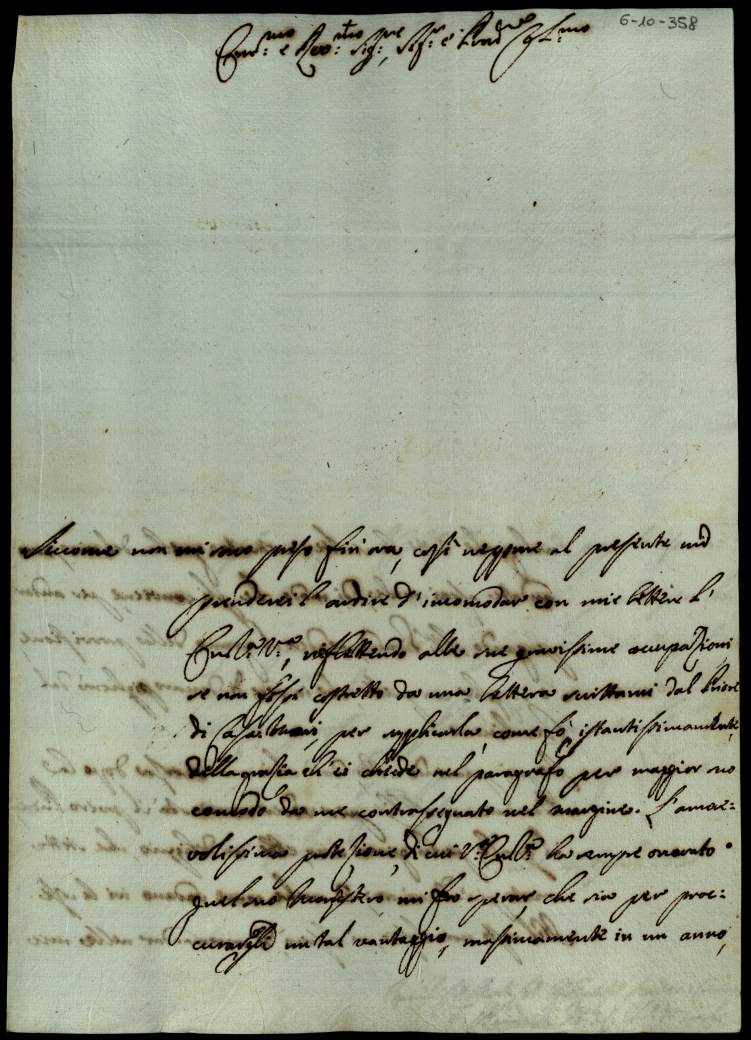 6-10-358
Em.mo e Rev.mo Sig.re, Sig.re e Pne Col.mo
Siccome non mi sono preso fin ora, così neppure al presente mi
prenderei l'ardire d'incomodar con mie lettere l'
Em.a V.a, riflettendo alle sue gravissime occupazioni,
se non fossi costretto da una lettera scrittami dal Priore
di Casamari, per supplicarla, come fò, istantissimamente,
della grazia ch'ei chiede nel paragrafo per maggior suo
comodo da me contrassegnato nel margine. L'amore-
volissima protezione, di cui V.a Em.a ha sempre onorato
quel suo Monistero, mi fa sperar, che sia per proc-
curargli un tal vantaggio, massimamente in un anno,